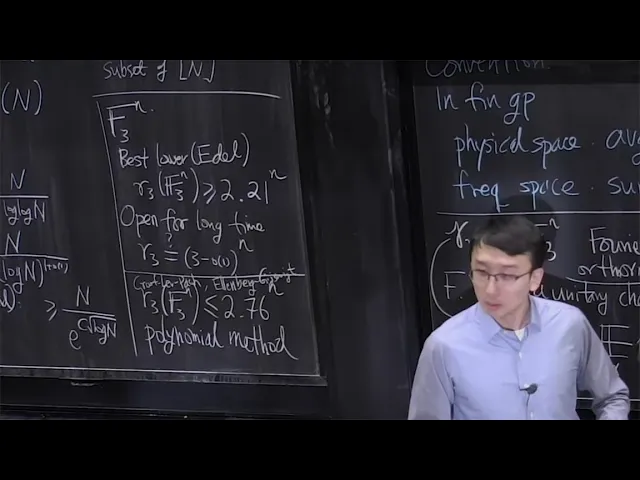 (N)
N
loglogN
N
(logN)^{1+o(1)}
≥ N
e^{C√logN}
subset of [N]
F_3^n.
Best lower (Edel)
r_3(F_3^n) ≥ 2.21^n
Open for long time
r_3 ?= (3-o(1))^n
Croot-Lev-Pach, Ellenberg-Gijswijt
r_3(F_3^n) ≤ 2.76^n
polynomial method
Convention
In fin gp
physical space · avg
freq space · su
Fourie
orthorn
F.
unitary cha